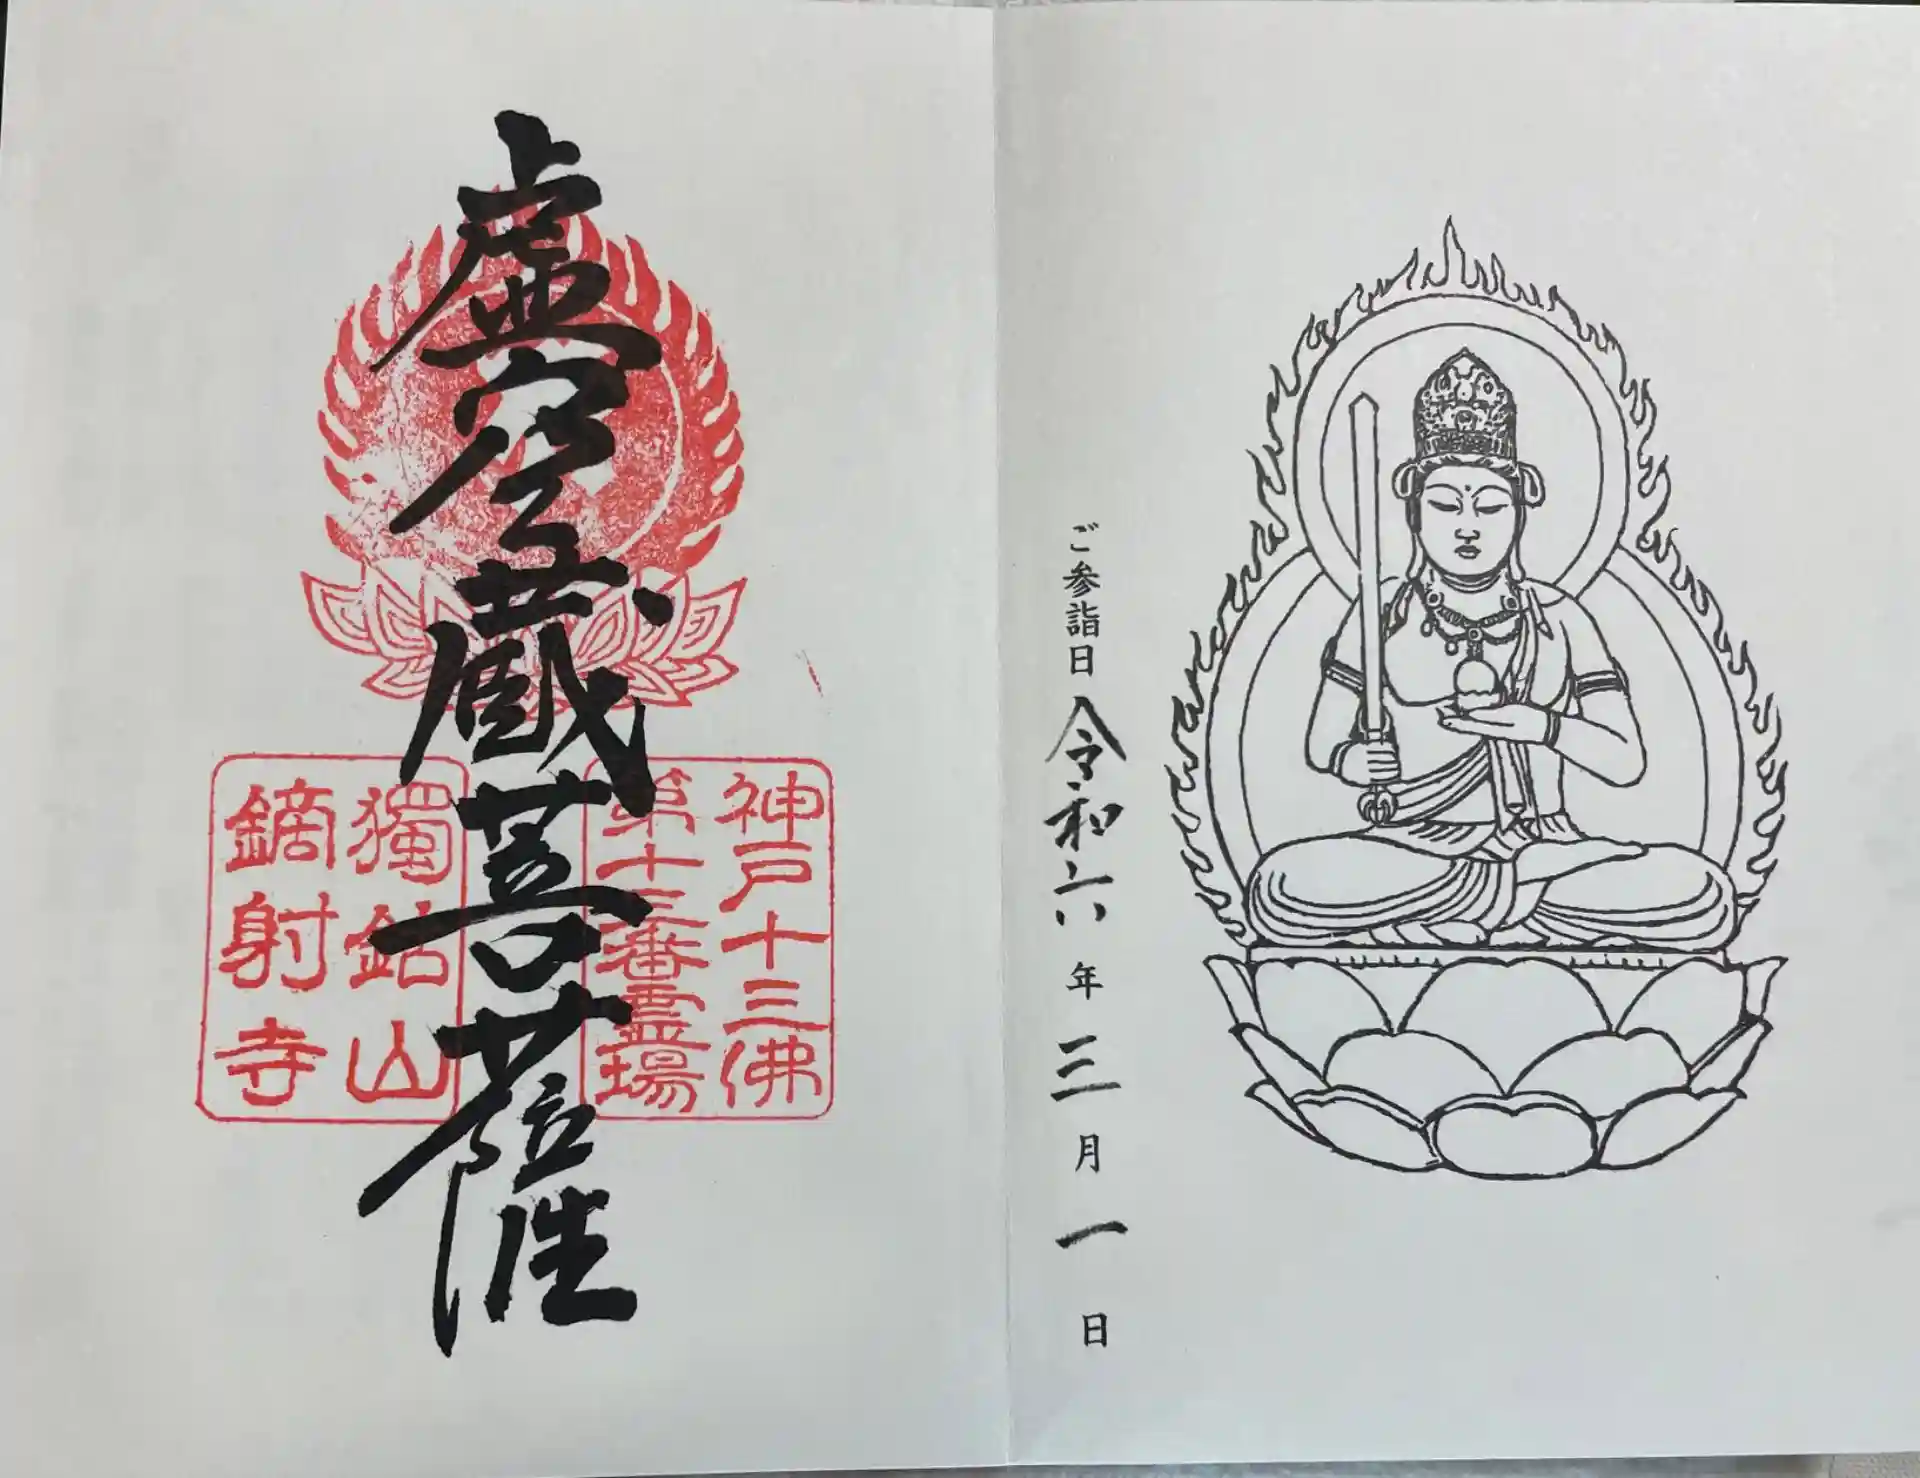 ご参詣日 令和六年三月一日
虚空蔵菩薩
神戸十三佛
第十三番霊場
獨鈷山
鏑射寺